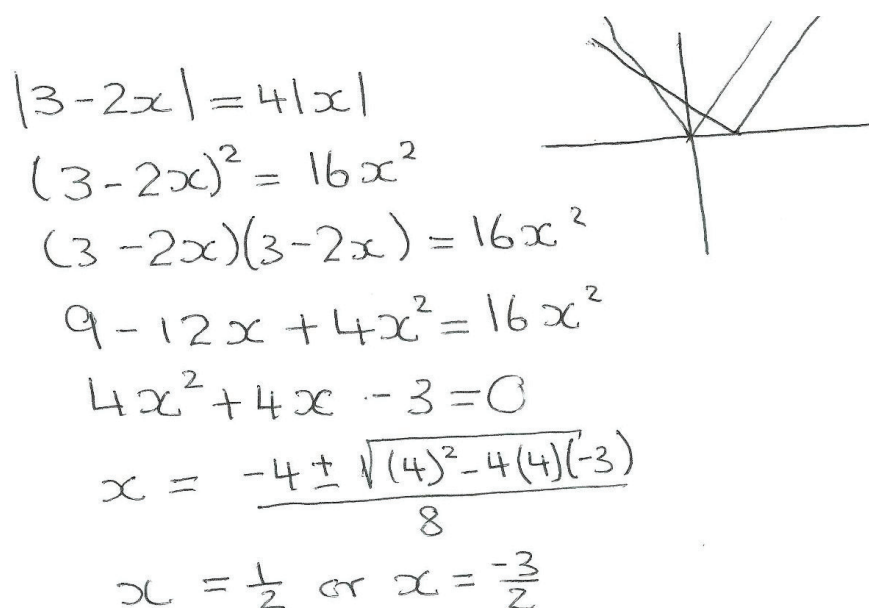 |3-2x| = 4|x|
(3-2x)² = 16x²
(3-2x)(3-2x) = 16x²
9-12x+4x² = 16x²
4x²+4x-3=0
x = (-4 ± √((4)²-4(4)(-3)))/8
x = 1/2 or x = -3/2